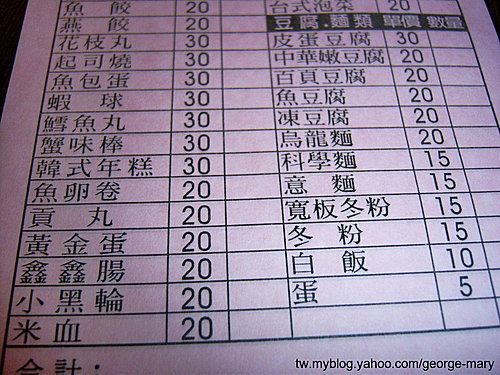 魚餃 20
燕餃 20
花枝丸 30
起司燒 30
魚包蛋 30
蝦球 30
鱈魚丸 30
蟹味棒 30
韓式年糕 30
魚卵卷 20
貢丸 20
黃金蛋 20
鑫鑫腸 20
小黑輪 20
米血 20
合計:
台式泡菜 20
豆腐.麵類 單價 數量
皮蛋豆腐 30
中華嫩豆腐 20
百頁豆腐 20
魚豆腐 20
凍豆腐 20
烏龍麵 20
科學麵 15
意麵 15
寬板冬粉 15
冬粉 15
白飯 10
蛋 5
tw.myblog.yahoo.com/george-mary